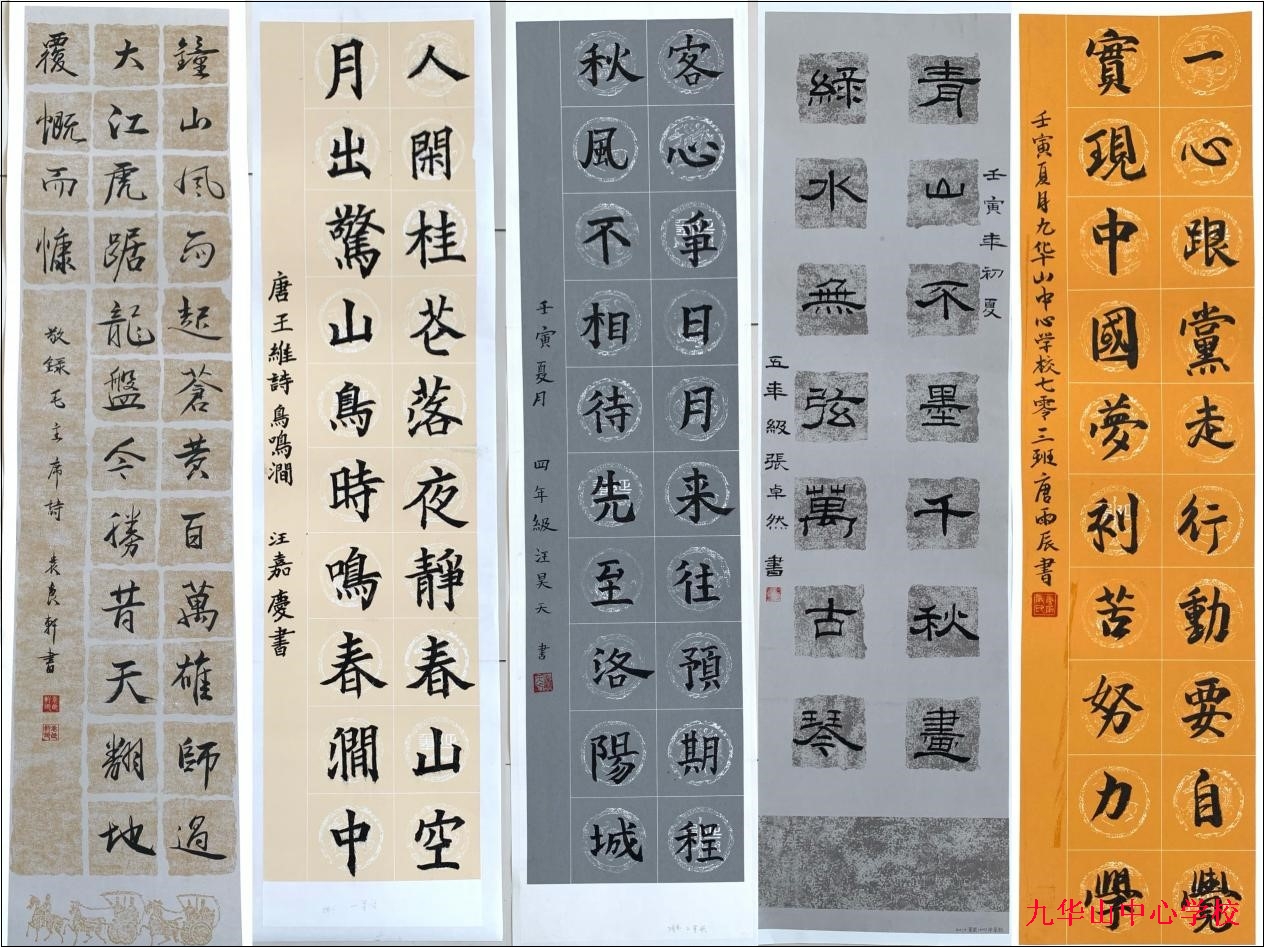 鐘山風雨起蒼黄百萬雄師過
大江虎踞龍盤今勝昔天翻地
覆慨而慷
敬録毛主席詩 軒書
人閑桂花落夜靜春山空
月出驚山鳥時鳴春澗中
唐王維詩鳥鳴澗 汪嘉慶書
客心爭日月来往預期程
秋風不相待先至洛陽城
壬寅夏月 四年級汪昊天書
壬寅年初夏
青山不墨千秋畫
緑水無弦萬古琴
五年級張卓然書
一心跟黨走行動要自覺
實現中國夢刻苦努力學
壬寅夏月九华山中心学校七零三班唐雨辰書
九华山中心学校